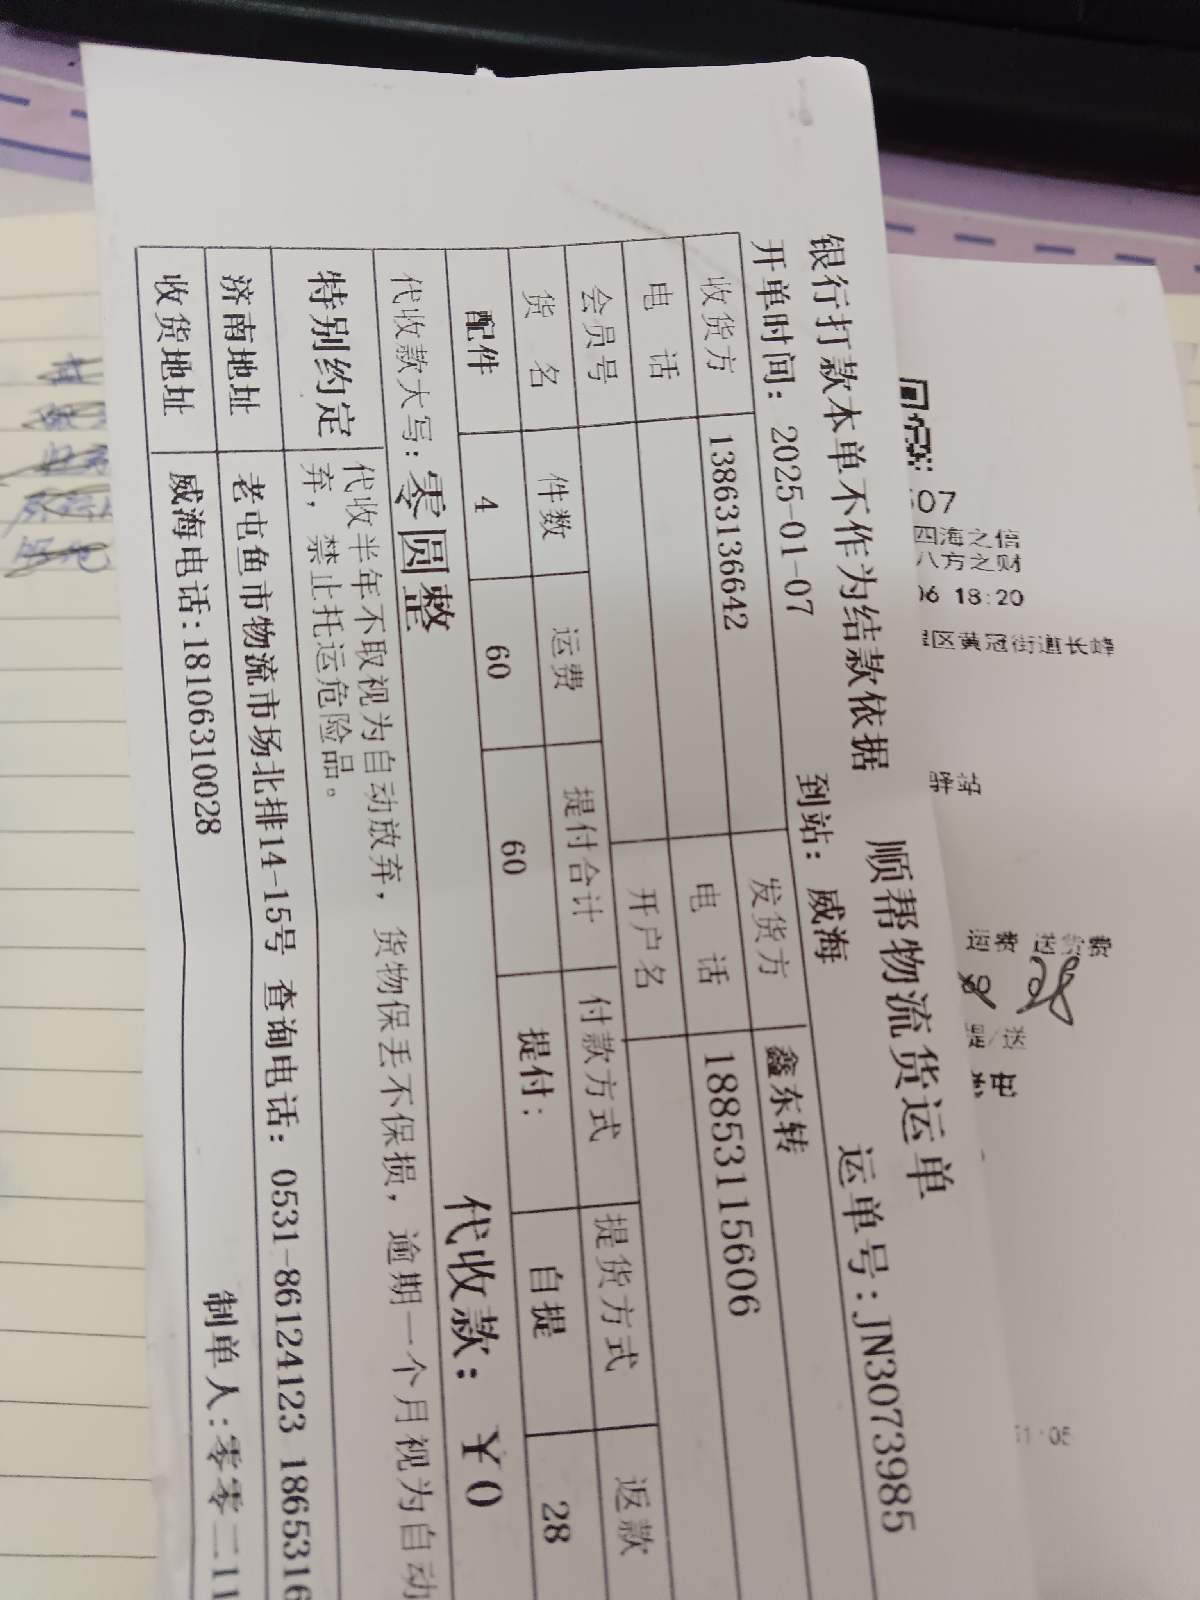 顺帮物流货运单
银行打款本单不作为结款依据
运单号:JN3073985
开单时间: 2025-01-07 到站: 威海
收货方 13863136642 发货方 鑫东转
电 话 电 话 18853115606
会员号 开户名
货 名 件数 运费 提付合计 付款方式 提货方式 返款
配件 4 60 60 提付: 自提 28
代收款大写: 零圆整 代收款: ¥0
特别约定 代收半年不取视为自动放弃, 货物保丢不保损, 逾期一个月视为自动
弃, 禁止托运危险品。
济南地址 老屯鱼市物流市场北排14-15号 查询电话: 0531-86124123 1865316
收货地址 威海电话:18106310028
制单人:零零二11
507
四海之信
八方之财
06 18:20
区黄冠街道长峰
驿站
运费 送货费
28
提/送
51:05